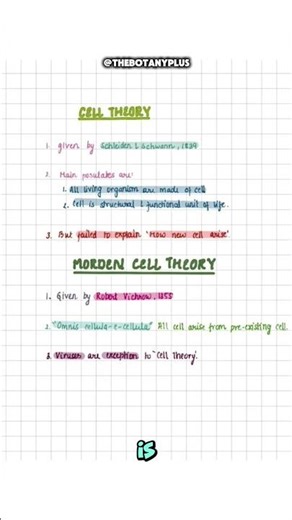 @THEBOTANYPLUS
CELL THEORY
1. given by Schleiden & Schwann, 1839
2. Main postulates are
1. All living organism are made of cell
2. Cell is structural & functional unit of life.
3. But failed to explain 'How new cell arise'
MORDEN CELL THEORY
1. Given by Robert Vichrow,
2. "Omnis cellula-e-cellula" All cell arise from pre-existing cell.
3. Viruses are exception to "Cell Theory".
is